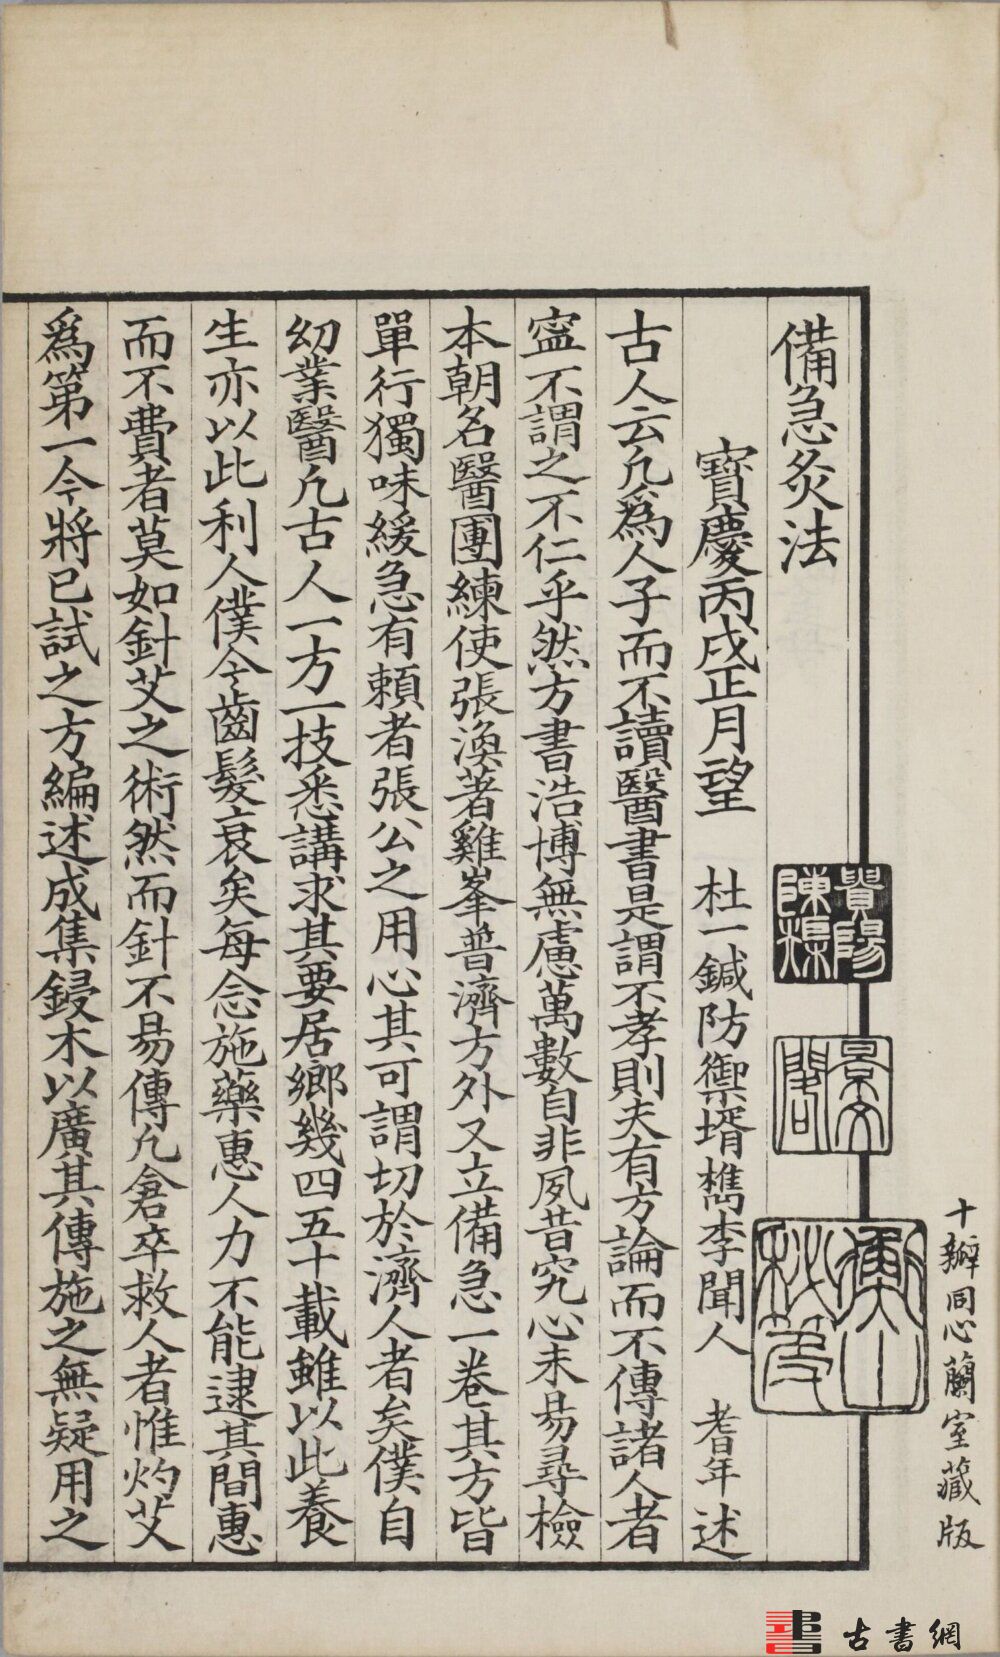 備急灸法
寶慶丙戌正月望 杜一鍼防禦壻檇李聞人 耆年 述
古人云凢爲人子而不讀醫書是謂不孝則夫有方論而不傳諸人者
寍不謂之不仁乎然方書浩博無慮萬數自非夙昔究心未易尋檢
本朝名醫團練使張渙著雞峯普濟方外又立備急一卷其方皆
單行獨味緩急有賴者張公之用心其可謂切於濟人者矣僕自
幼業醫凢古人一方一技悉講求其要居鄉幾四五十載雖以此養
生亦以此利人僕今齒髮衰矣每念施藥惠人力不能逮其間惠
而不費者莫如針艾之術然而針不易傳凢倉卒救人者惟灼艾
爲第一今將已試之方編述成集鋟木以廣其傳施之無疑用之
貴陽陳榘
十瓣同心蘭室藏版
古書網